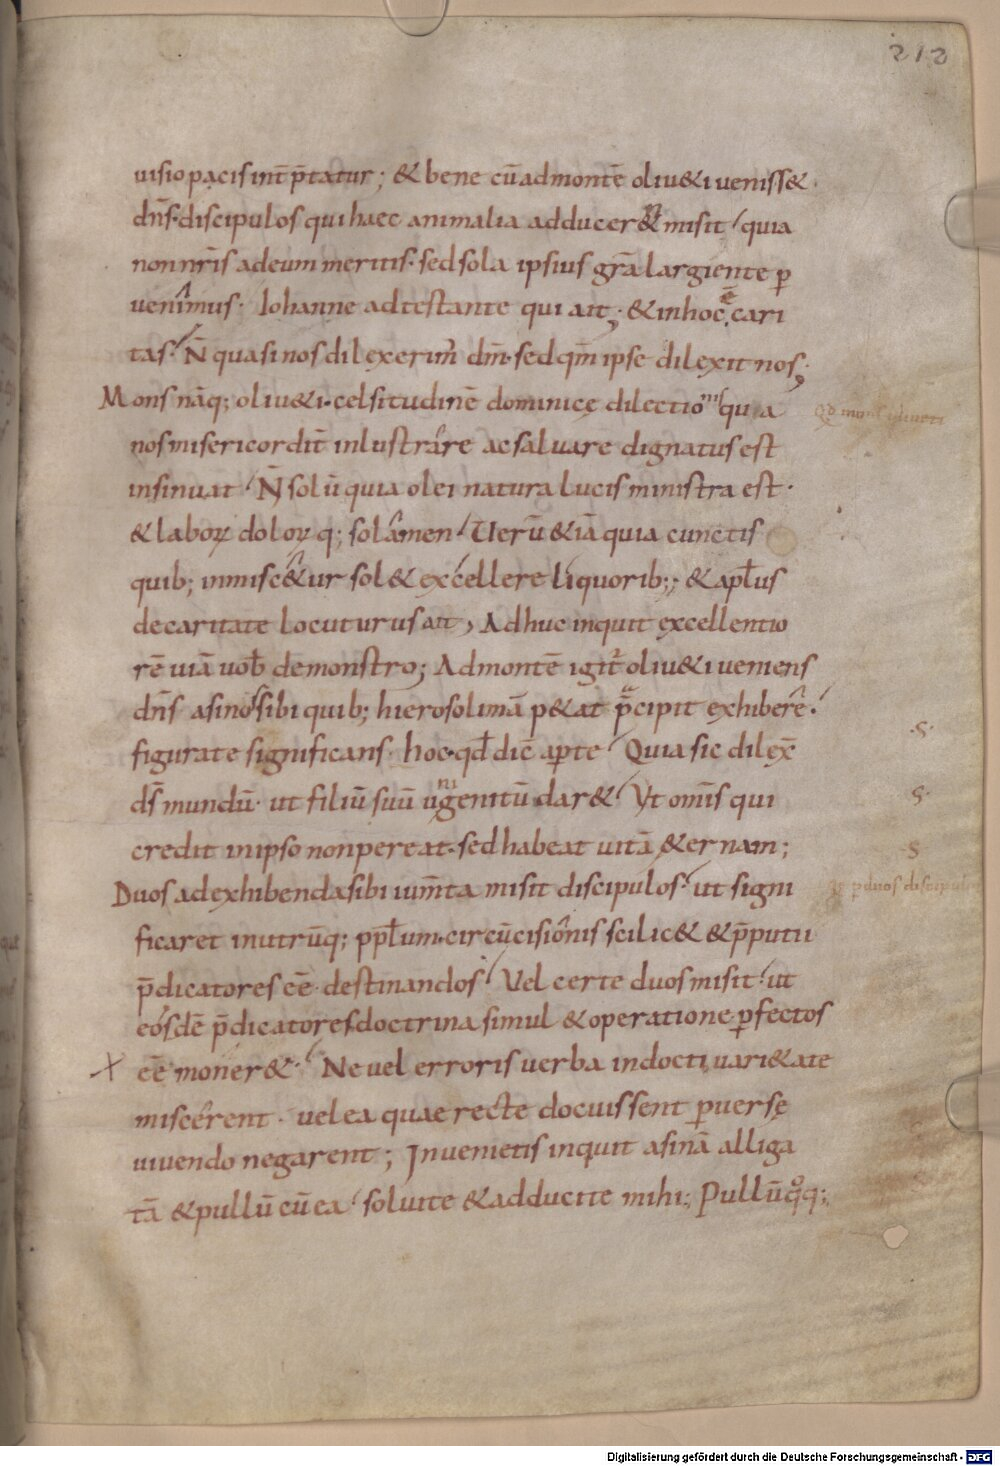 212
uisio pacis int̄p̄tatur; & bene cū ad montē oliu&i ueniss&.
dn̄s. discipulos qui haec animalia adducer&n̄ misit quia
non nr̄is ad eum meritis. sed sola ipsius gr̄a largiente ꝑ
uenimus. Iohanne adtestante qui ait; & in hoc ē cari
tas. N̄ quasi nos dilexerim̄ dm̄. sed qm̄ ipse dilexit nos;
Mons nāq; oliu&i. celsitudinē dominicę dilectionis quia
Qd mons oliueti
nos misericordit̄ inlustrare ac saluare dignatus est
insinuat. N̄ solū quia olei natura lucis ministra est.
& laboꝝ doloꝝq; solamen. Uerū &iā quia cunctis
quib; inmisc&ur sol& excellere liquorib;; & apl̄us
de caritate locuturus ait, Adhuc inquit excellentio
rē uiā uob̄ demonstro; Ad montē igit̄ oliu&i ueniens
dn̄s asinos sibi quib; hierosolimā p&at p̄cipit exhibere.
figurate significans. hoc. qd̄ dic̄ aꝑte Quia sic dilex̄
.s.
ds̄ mundū. ut filiū suū unigenitū dar& Vt omīs qui
s.
credit in ipso non pereat. sed habeat uitā &ernam;
s
Duos ad exhibenda sibi ium̄ta misit discipulos. ut signi
ꝑ duos discipulos
ficaret in utrūq; ppl̄um. circūcisionis scilic& & p̄putii
p̄dicatores eē destinandos Vel certe duos misit ut
eosdē p̄dicatores doctrina simul & operatione ꝑfectos
eē moner&. Ne uel erroris uerba indocti uari&ate
miscerent. uel ea quae recte docuissent ꝑuersę
uiuendo negarent; Inuenietis inquit asinā alliga
tā & pullū cū ea. soluite & adducite mihi; Pullū qͦq;
Digitalisierung gefördert durch die Deutsche Forschungsgemeinschaft - DFG